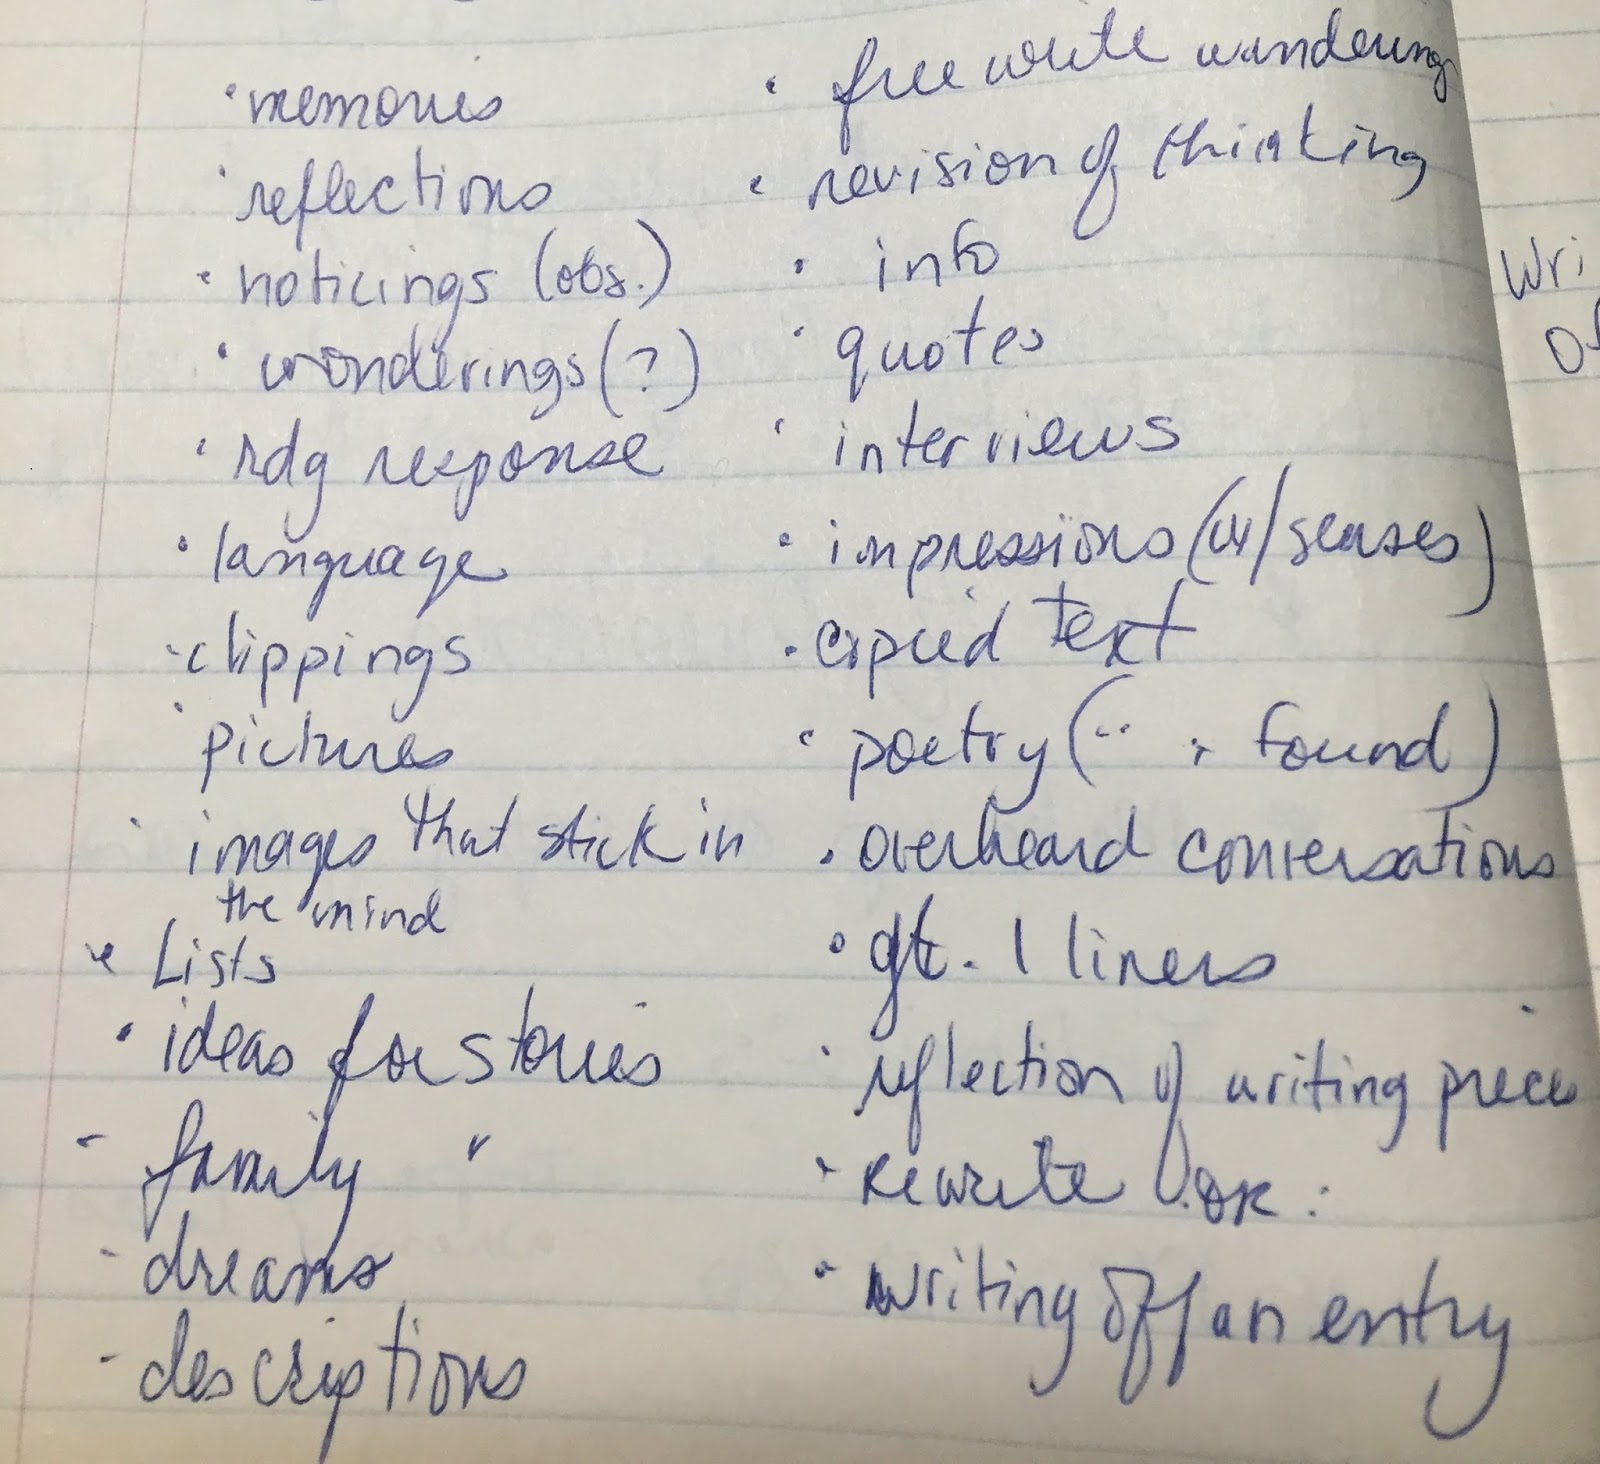 · memories
· reflections
· noticings (obs.)
· wonderings (?)
· rdg response
· language
· clippings
· pictures
· images that stick in
the mind
· Lists
· ideas for stories
- family "
- dreams
- descriptions
· free write wandering
· revision of thinking
· info
· quotes
· interviews
· impressions (w/ senses)
· copied text
· poetry ( " , found)
· overheard conversations
· gt. 1 liners
· reflection of writing piece
· rewrite
· writing off an entry
Wri